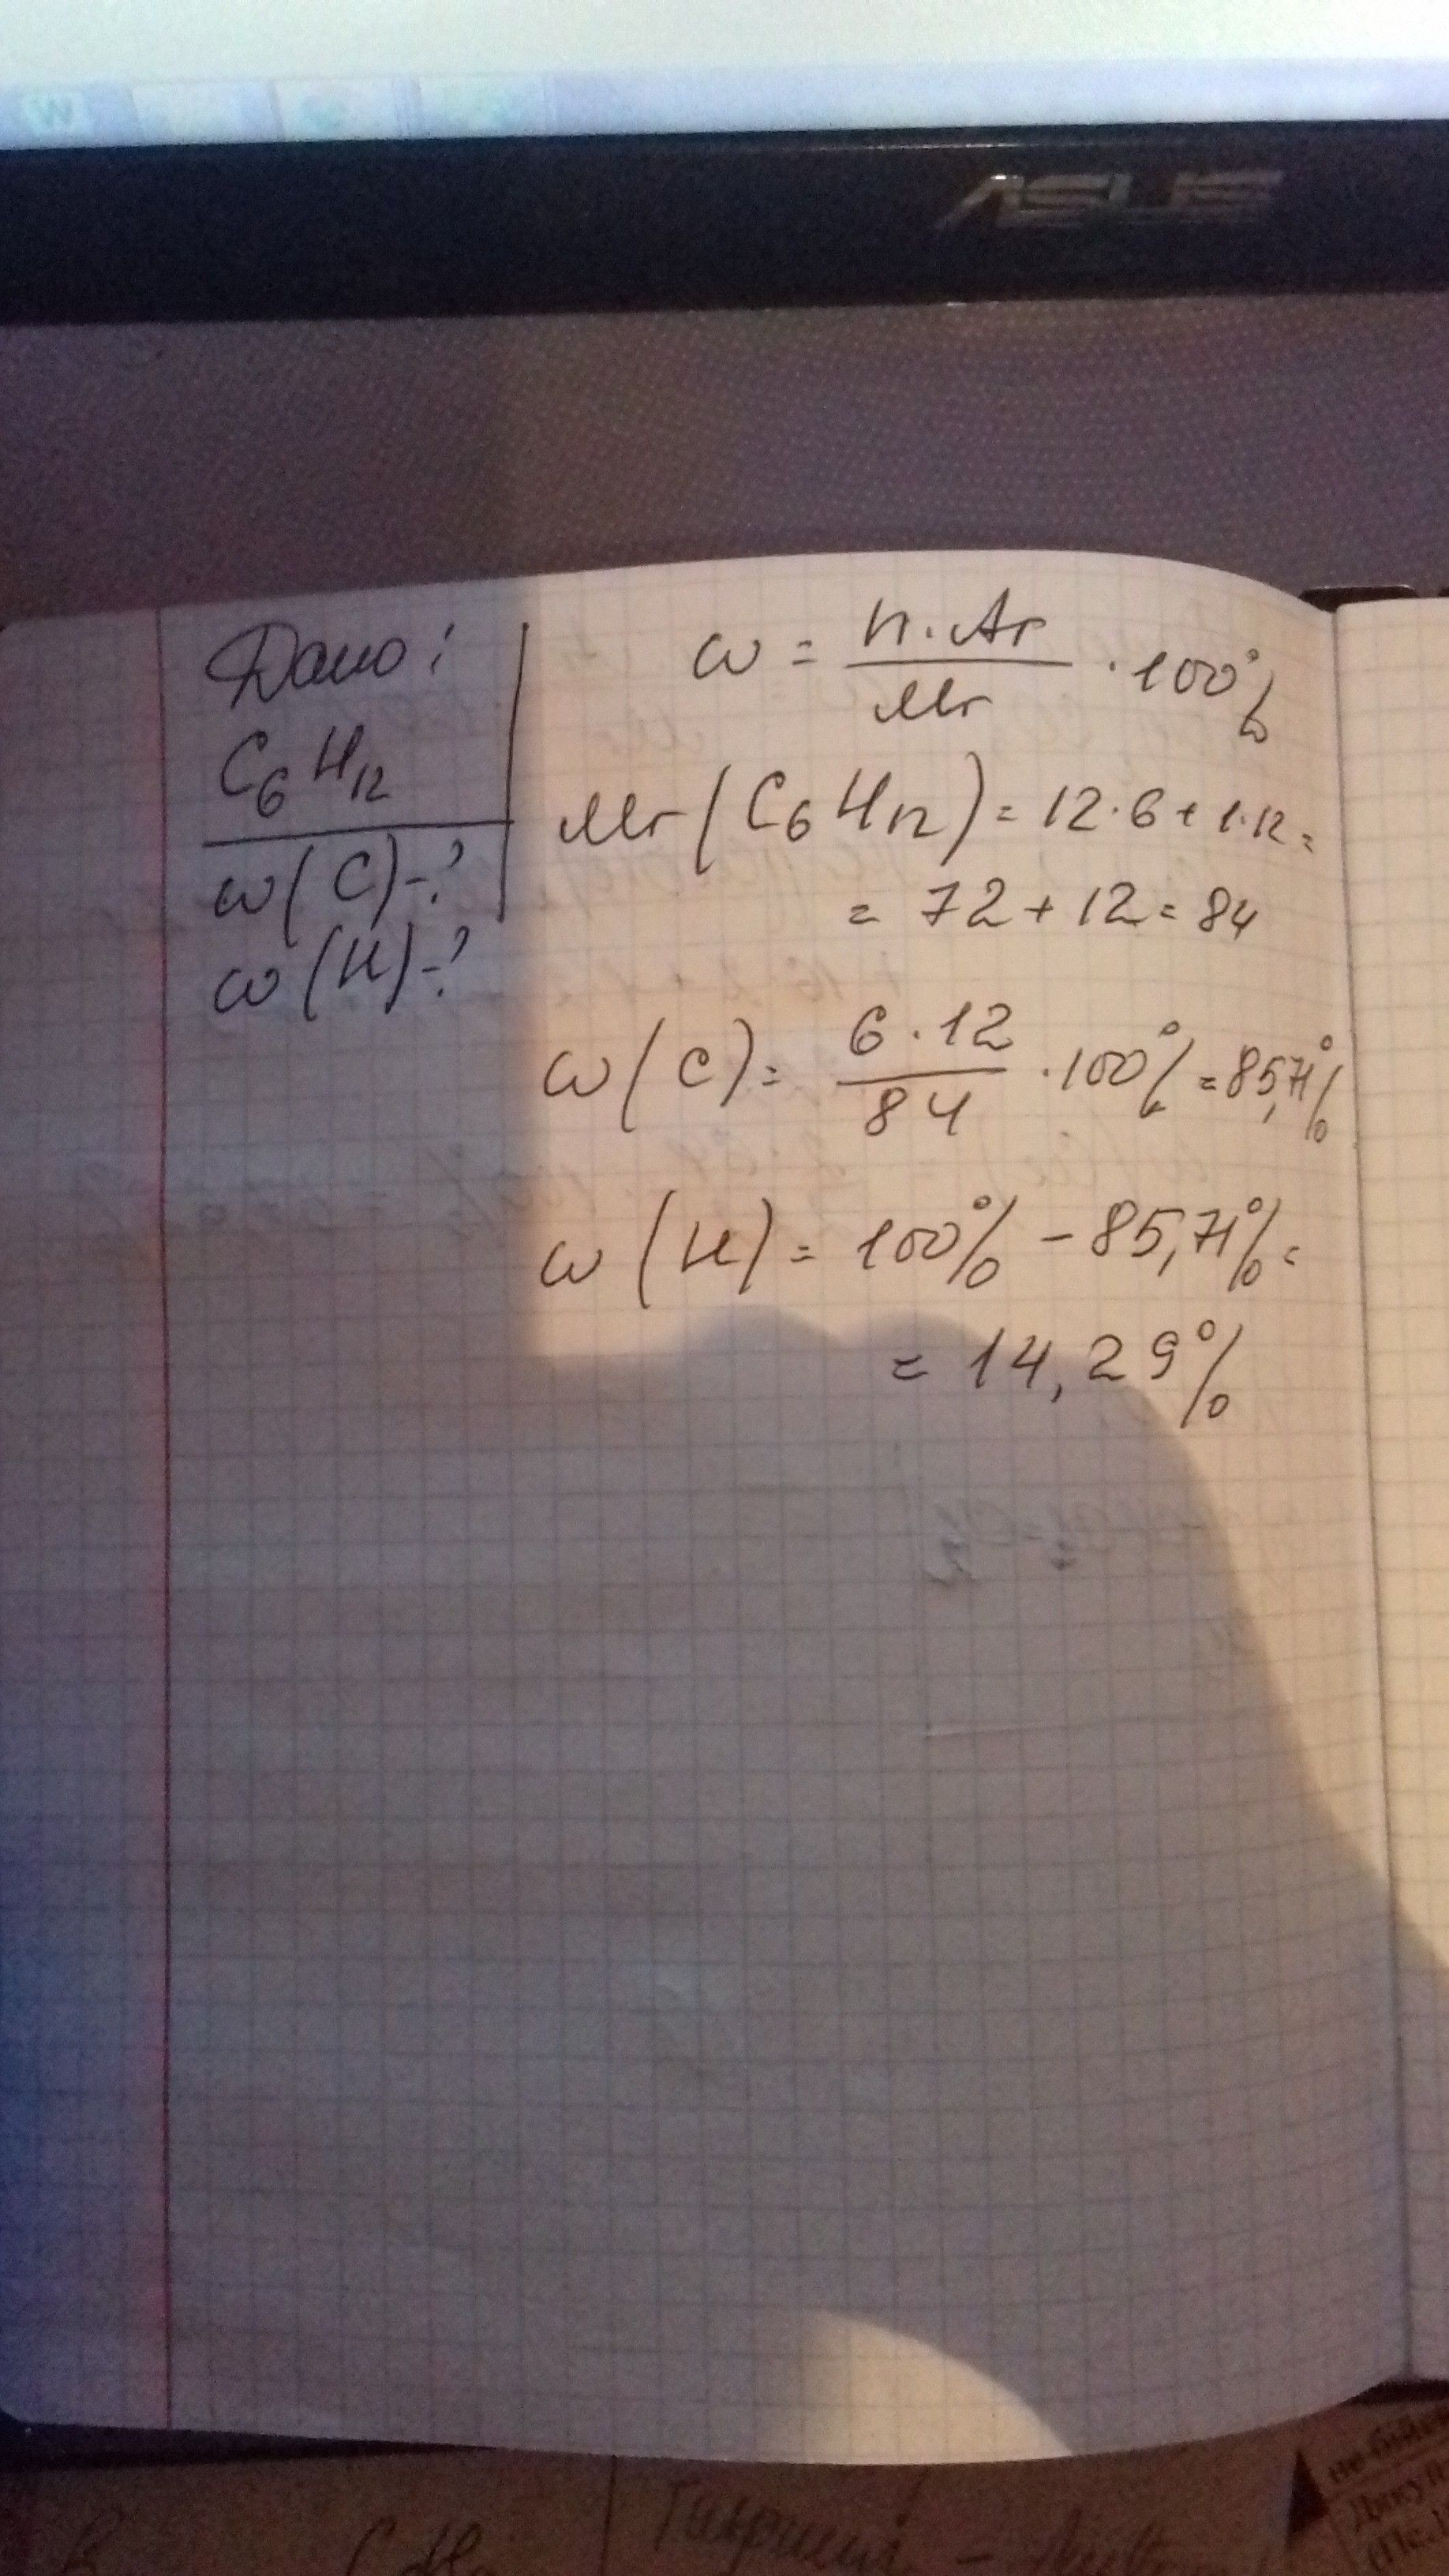 W
ASUS
Дано:
C₆H₁₂
ω(C)-?
ω(H)-?
ω = n·Ar / Mr · 100%
Mr(C₆H₁₂) = 12·6 + 1·12 =
= 72 + 12 = 84
ω(C) = 6·12 / 84 · 100% = 85,71%
ω(H) = 100% - 85,71% =
= 14,29%